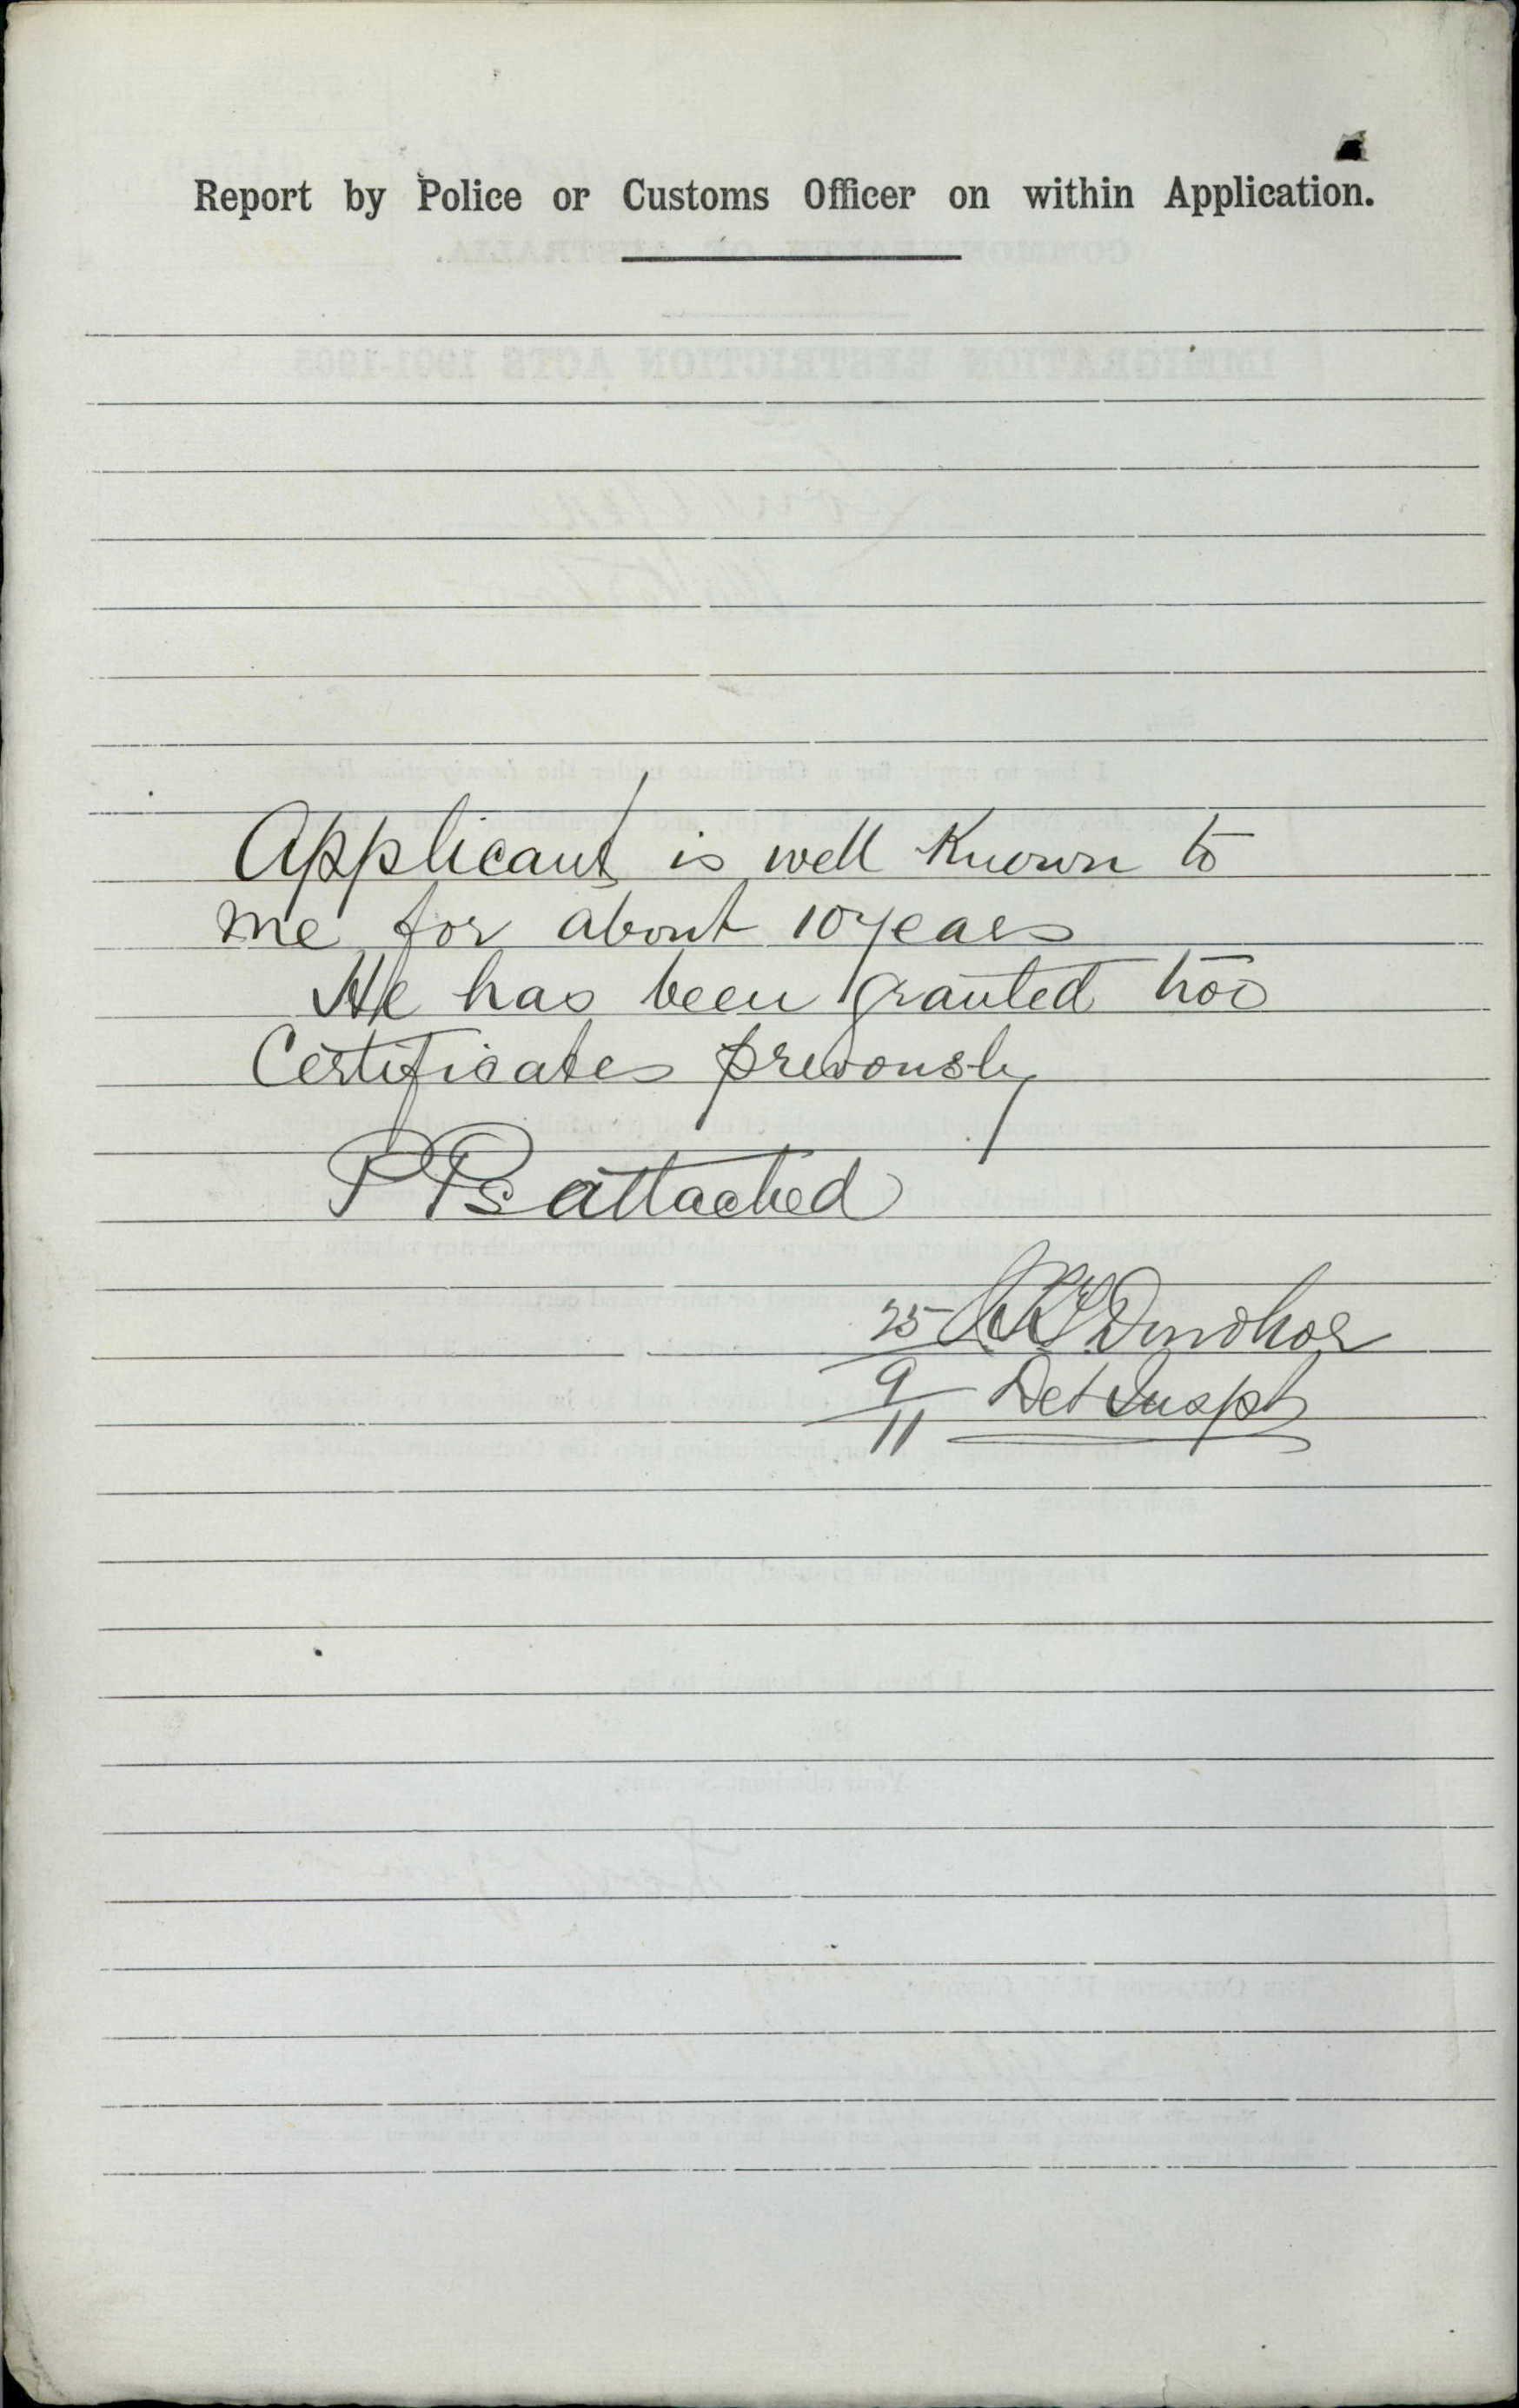 Report by Police or Customs Officer on within Application.
Applicant is well Known to
me for about 10 years
He has been granted two
Certificates prevously
PPs attached
25 Donohoe
9 Det Inspr
11